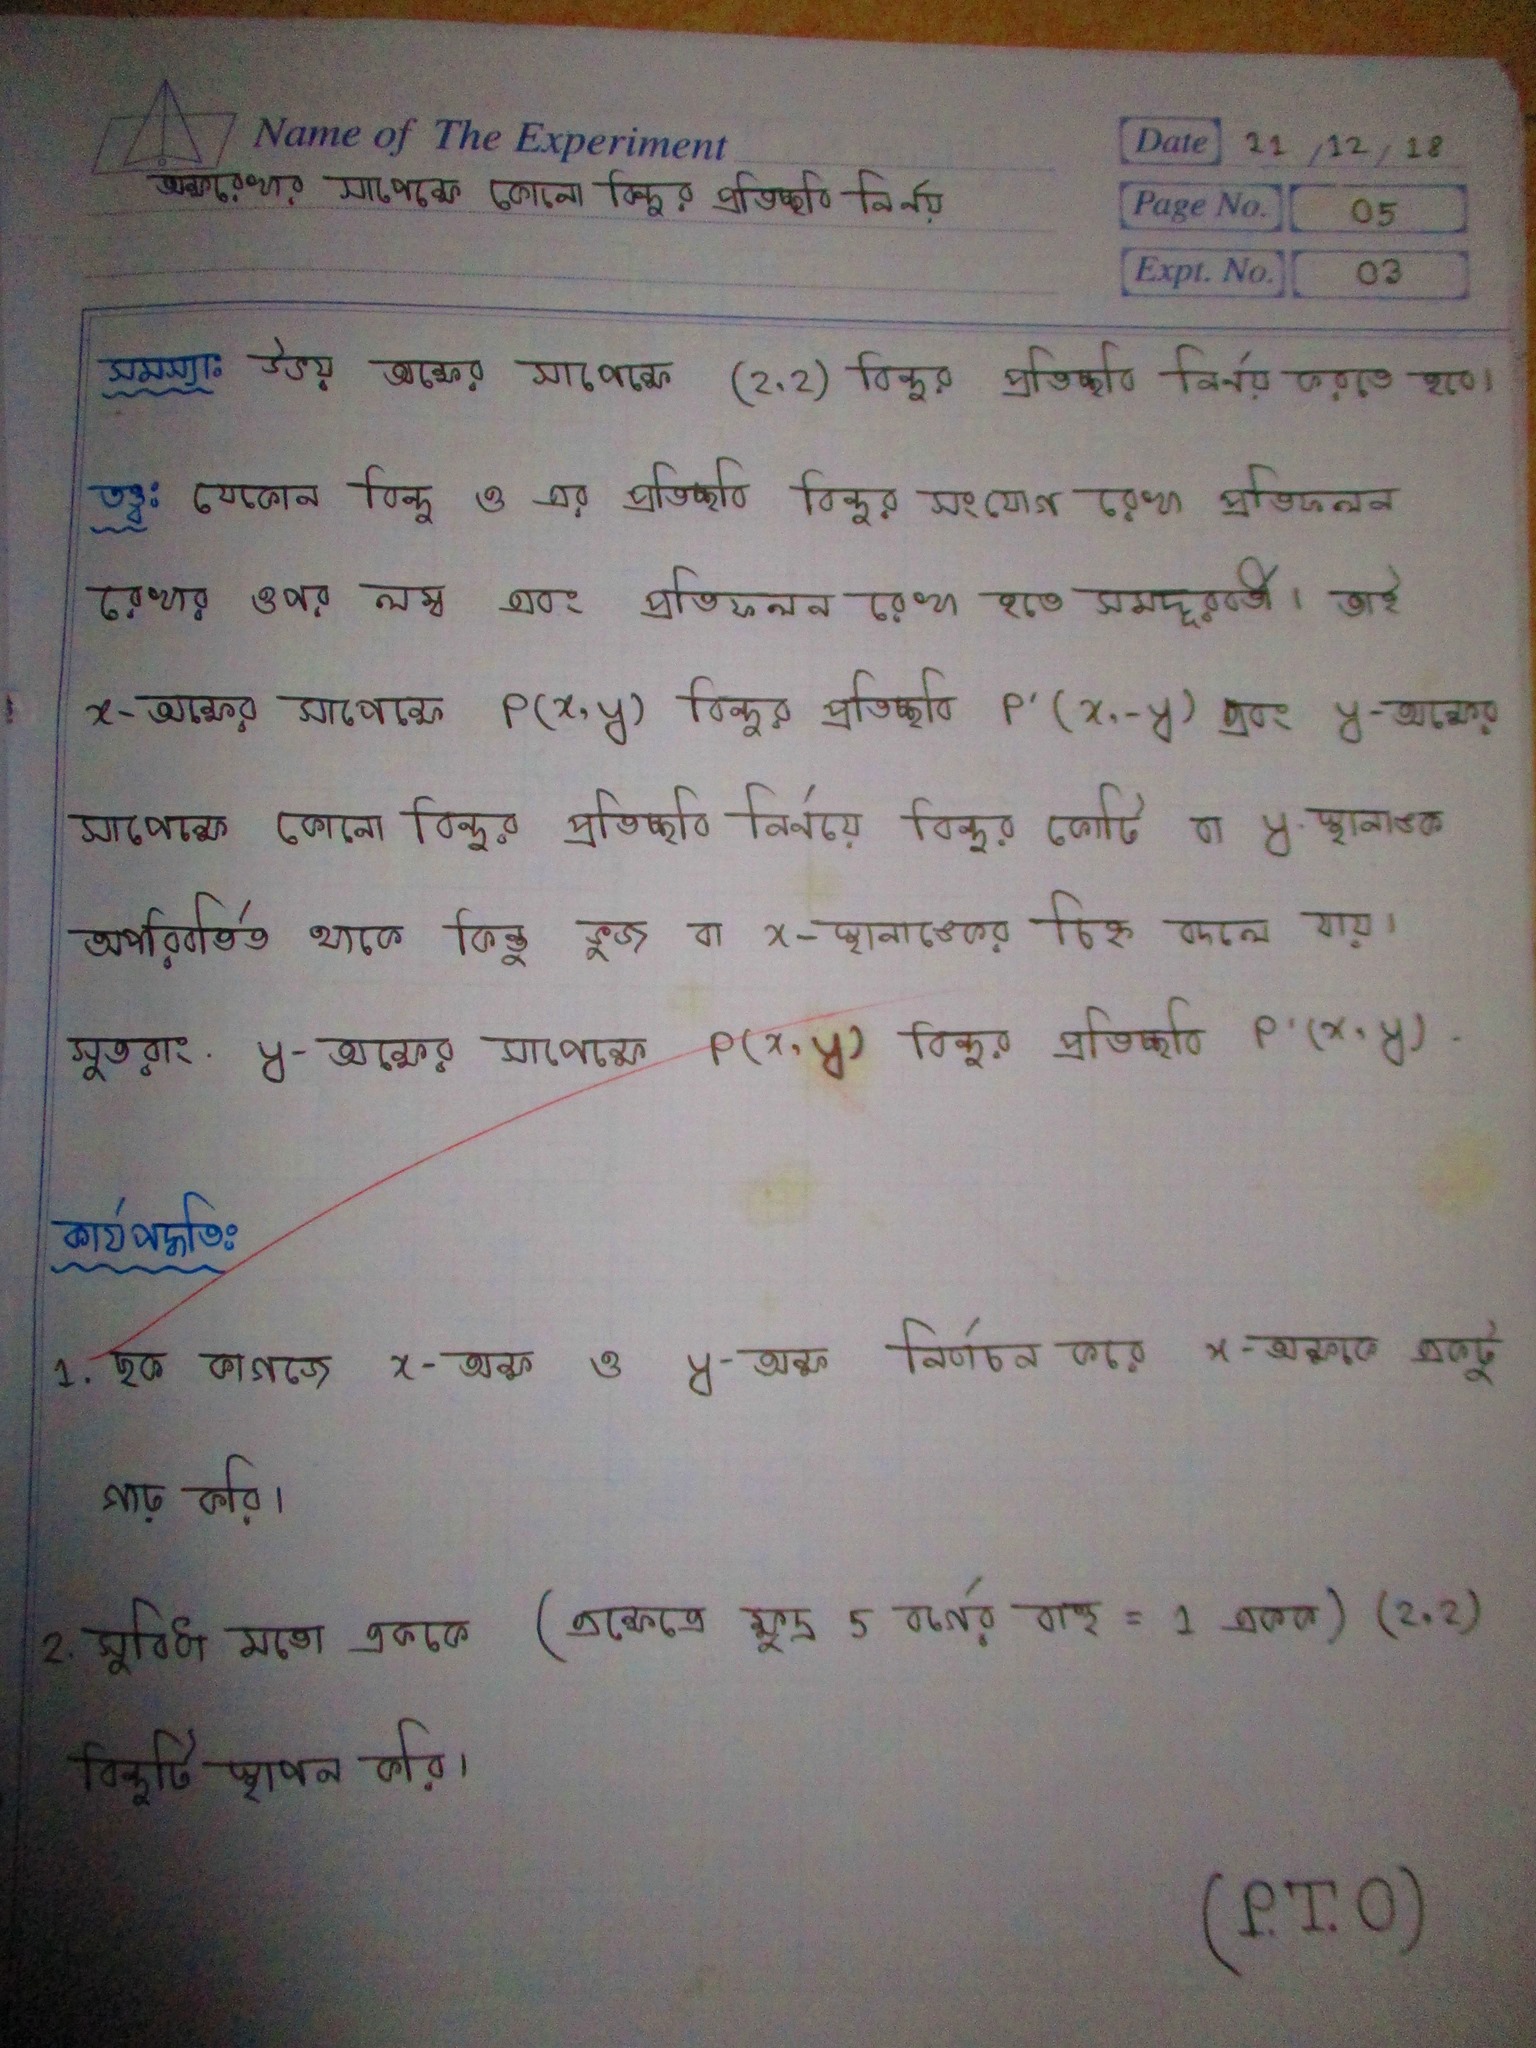 Name of The Experiment
অক্ষরেখার সাপেক্ষে কোনো বিন্দুর প্রতিচ্ছবি নির্ণয়
Date 21/12/18
Page No. 05
Expt. No. 03
সমস্যাঃ উভয় অক্ষের সাপেক্ষে (2,2) বিন্দুর প্রতিচ্ছবি নির্ণয় করতে হবে।
তত্ত্বঃ যেকোন বিন্দু ও এর প্রতিচ্ছবি বিন্দুর সংযোগ রেখা প্রতিফলন
রেখার ওপর লম্ব এবং প্রতিফলন রেখা হতে সমদূরবর্তী। তাই
x-অক্ষের সাপেক্ষে P(x,y) বিন্দুর প্রতিচ্ছবি P'(x,-y) এবং y-অক্ষের
সাপেক্ষে কোনো বিন্দুর প্রতিচ্ছবি নির্ণয়ে বিন্দুর কোটি বা y-স্থানাঙ্ক
অপরিবর্তিত থাকে কিন্তু ভুজ বা x-স্থানাঙ্কের চিহ্ন বদলে যায়।
সুতরাং. y-অক্ষের সাপেক্ষে P(x,y) বিন্দুর প্রতিচ্ছবি P'(x,y).
কার্যপদ্ধতিঃ
1. ছক কাগজে x-অক্ষ ও y-অক্ষ নির্বাচন করে x-অক্ষকে একটু
গাঢ় করি।
2. সুবিধা মতো এককে (এক্ষেত্রে ক্ষুদ্র 5 বর্গের বাহু = 1 একক) (2,2)
বিন্দুটি স্থাপন করি।
(P.T.O)